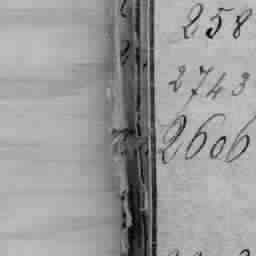 258
2743
2606